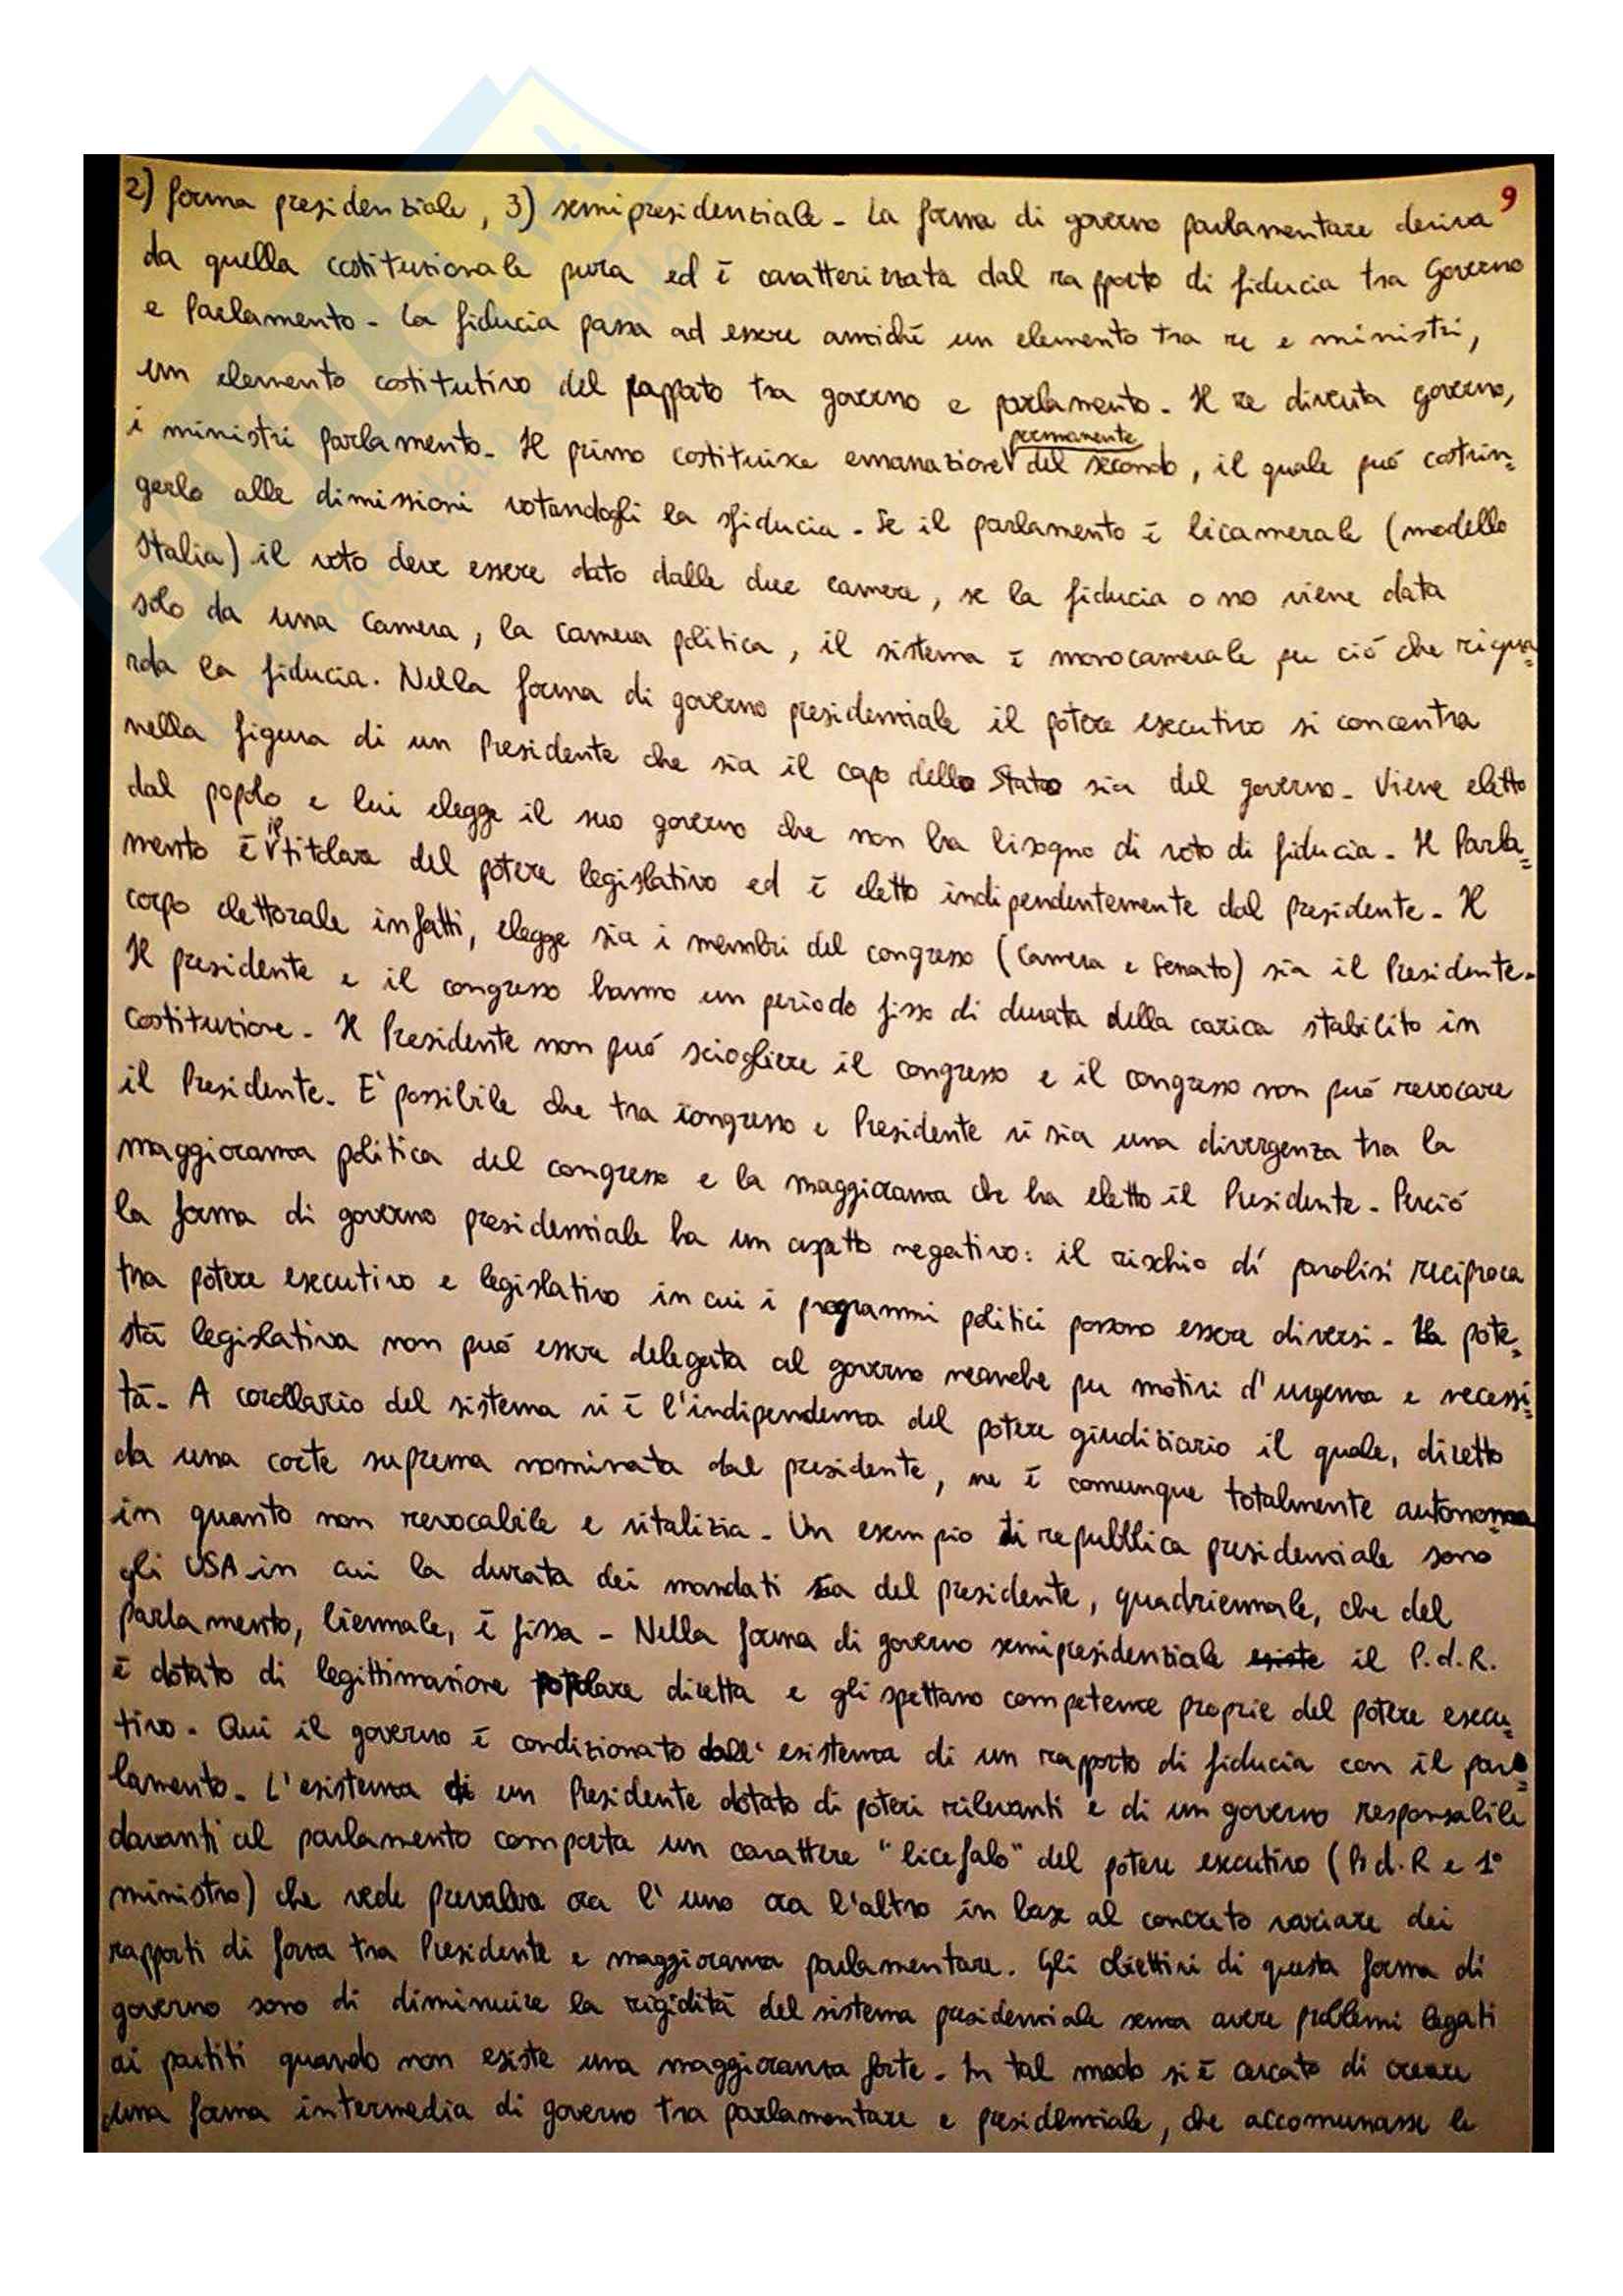 9
2) forma presidenziale, 3) semipresidenziale - La forma di governo parlamentare deriva
da quella costituzionale pura ed è caratterizzata dal rapporto di fiducia tra Governo
e Parlamento - La fiducia passa ad essere anziché un elemento tra re e ministri,
un elemento costitutivo del rapporto tra governo e parlamento - Il re diventa governo,
i ministri parlamento - Il primo costituisce emanazione permanente del secondo, il quale può costrin=
gerlo alle dimissioni votandogli la sfiducia - Se il parlamento è bicamerale (modello
Italia) il voto deve essere dato dalle due camere, se la fiducia o no viene data
solo da una Camera, la camera politica, il sistema è monocamerale per ciò che rigua=
rda la fiducia. Nella forma di governo presidenziale il potere esecutivo si concentra
nella figura di un Presidente che sia il capo dello Stato sia del governo - Viene eletto
dal popolo e lui elegge il suo governo che non ha bisogno di voto di fiducia - Il Parla=
mento è il titolare del potere legislativo ed è eletto indipendentemente dal presidente - Il
corpo elettorale infatti, elegge sia i membri del congresso (Camera e Senato) sia il Presidente -
Il presidente e il congresso hanno un periodo fisso di durata della carica stabilito in
costituzione - Il Presidente non può sciogliere il congresso e il congresso non può revocare
il Presidente. E' possibile che tra congresso e Presidente vi sia una divergenza tra la
maggioranza politica del congresso e la maggioranza che ha eletto il Presidente - Perciò
la forma di governo presidenziale ha un aspetto negativo: il rischio di paralisi reciproca
tra potere esecutivo e legislativo in cui i programmi politici possono essere diversi - La pote=
stà legislativa non può essere delegata al governo neanche per motivi d'urgenza e necessi=
tà - A corollario del sistema vi è l'indipendenza del potere giudiziario il quale, diretto
da una corte suprema nominata dal presidente, ne è comunque totalmente autonoma
in quanto non revocabile e vitalizia - Un esempio di repubblica presidenziale sono
gli USA in cui la durata dei mandati sia del presidente, quadriennale, che del
parlamento, biennale, è fissa - Nella forma di governo semipresidenziale esiste il P.d.R.
è dotato di legittimazione popolare diretta e gli spettano competenze proprie del potere esecu=
tivo - Qui il governo è condizionato dall'esistenza di un rapporto di fiducia con il par=
lamento - L'esistenza di un Presidente dotato di poteri rilevanti e di un governo responsabile
davanti al parlamento comporta un carattere "bicefalo" del potere esecutivo (P.d.R e 1°
ministro) che vede prevalere ora l'uno ora l'altro in base al concreto variare dei
rapporti di forza tra Presidente e maggioranza parlamentare. Gli obiettivi di questa forma di
governo sono di diminuire la rigidità del sistema presidenziale senza avere problemi legati
ai partiti quando non esiste una maggioranza forte - In tal modo si è cercato di creare
una forma intermedia di governo tra parlamentare e presidenziale, che accomunasse le